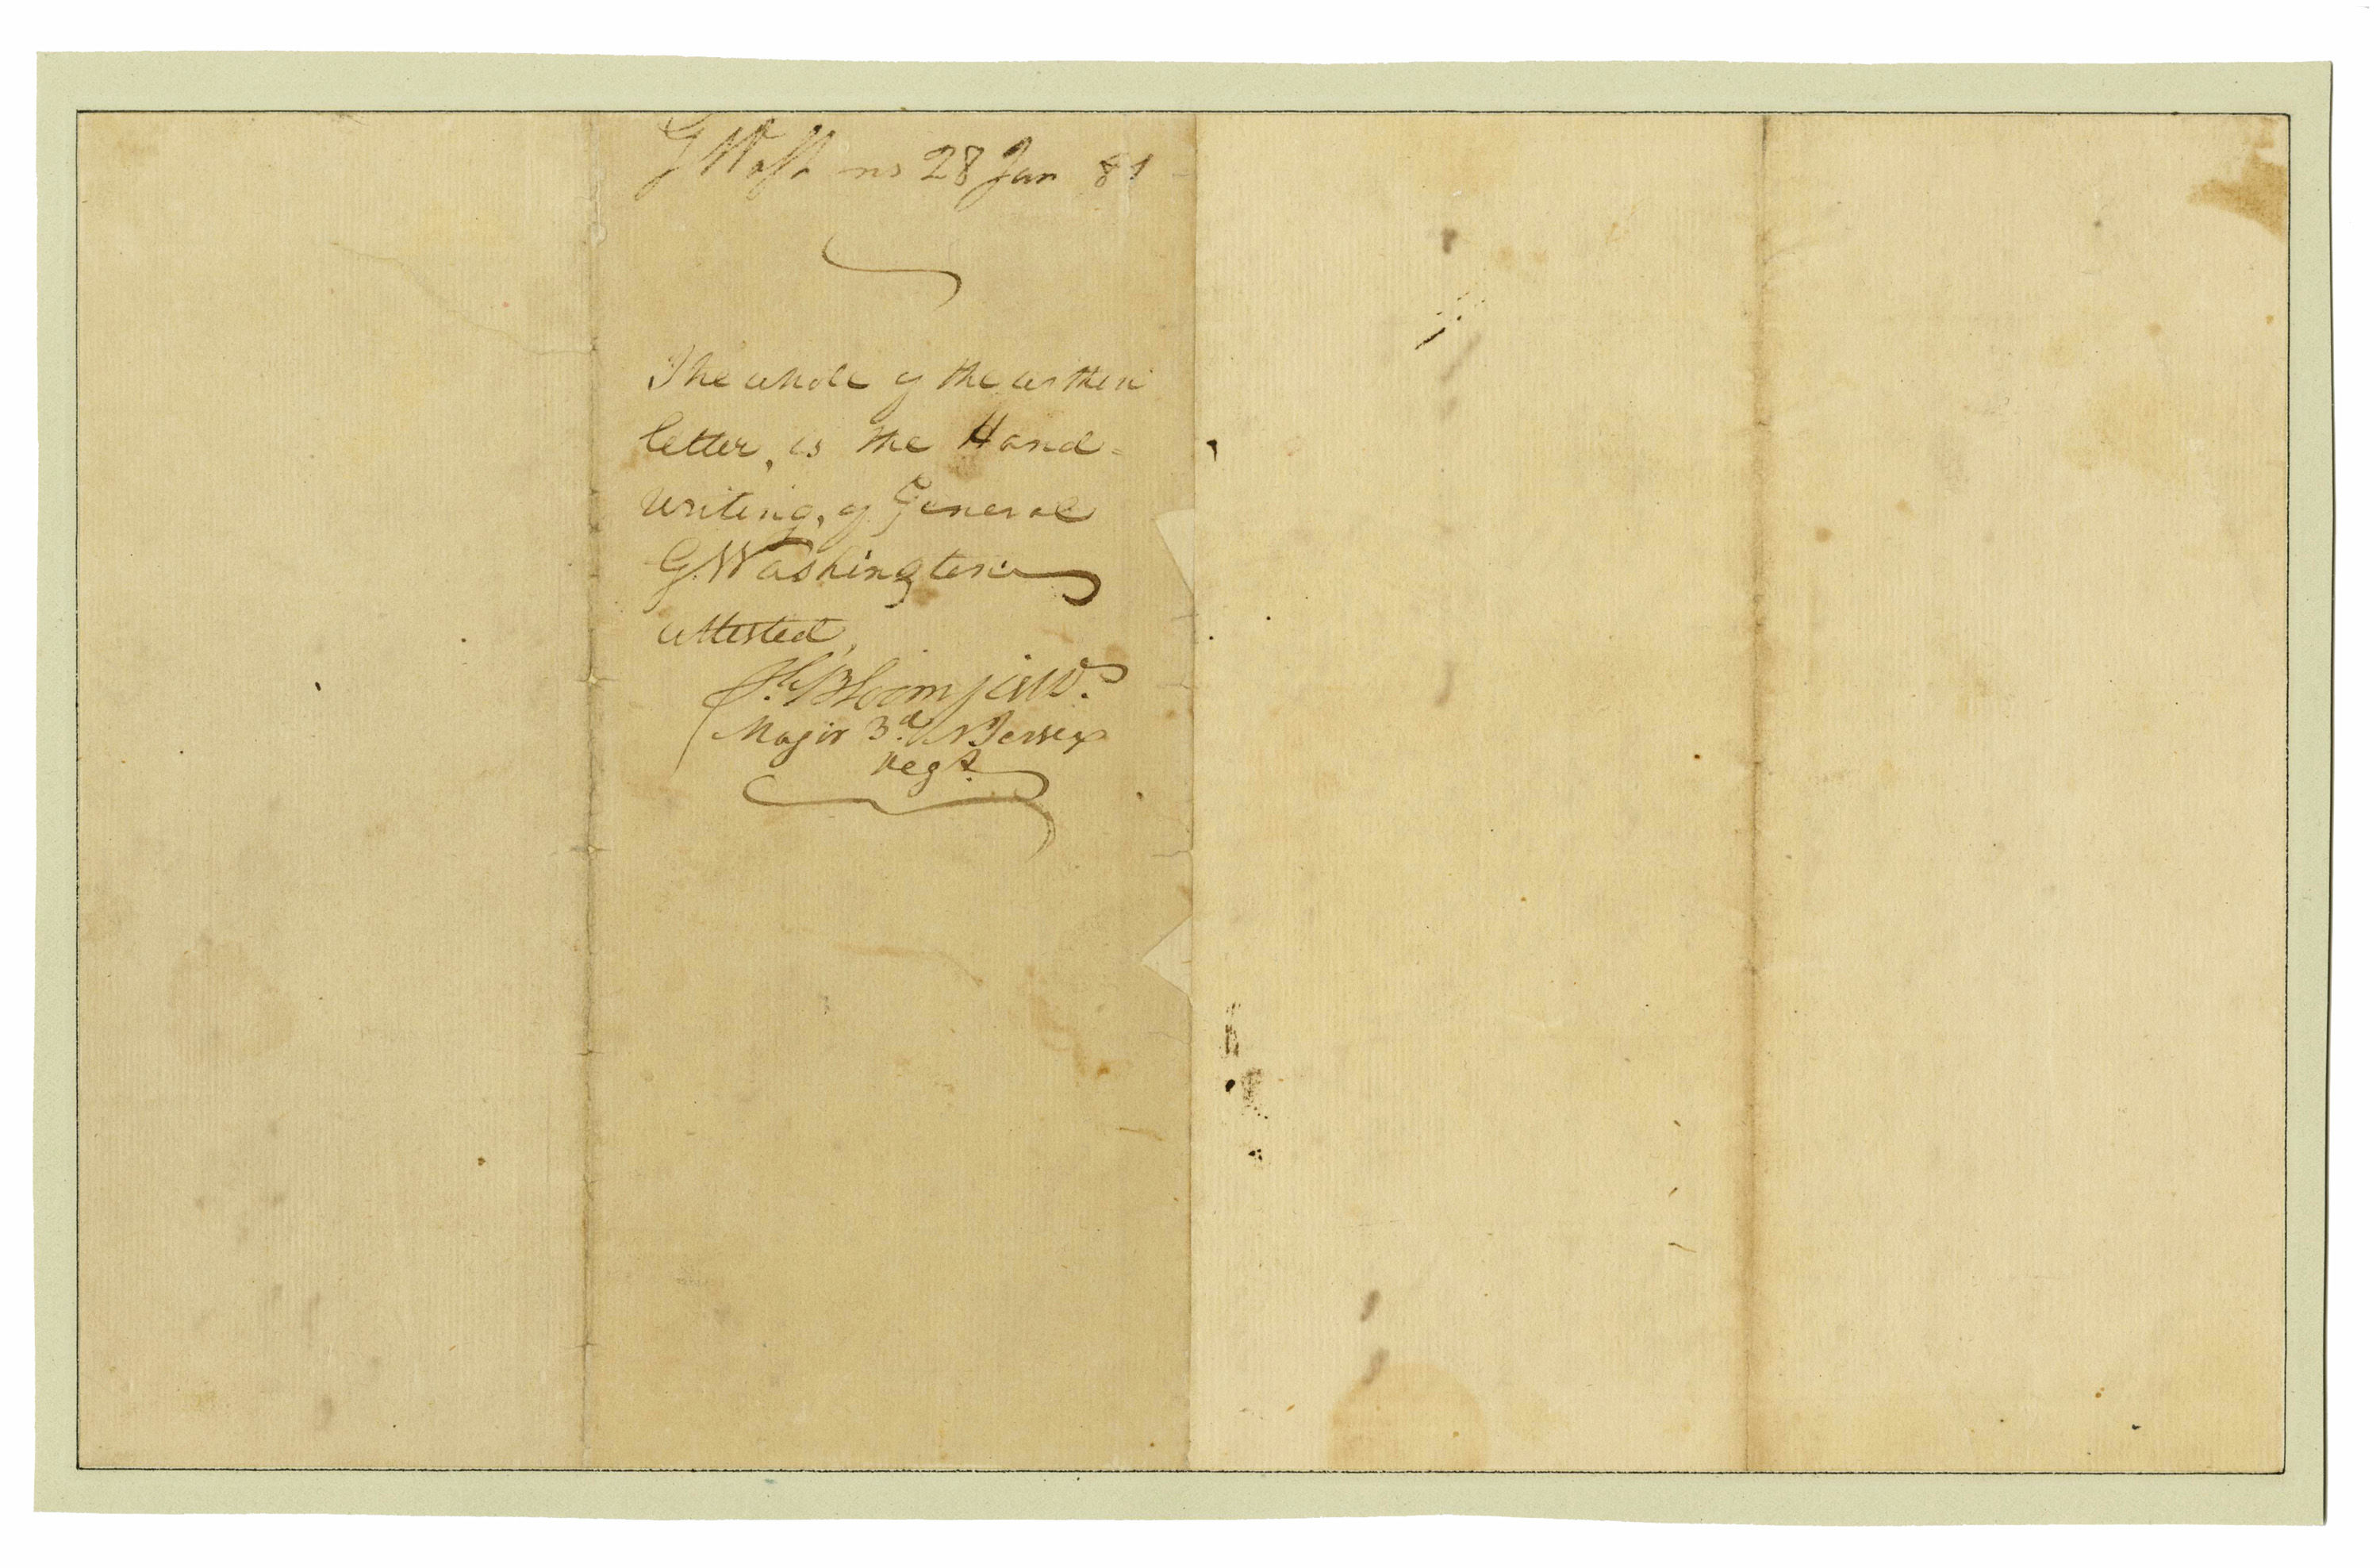 G Wash ns 28 Jan 81
The whole of the within
letter, is the Hand=
writing, of General
G. Washington
attested,
Jos. Bloomfield.
Major 3.d N Jersey
Regt.